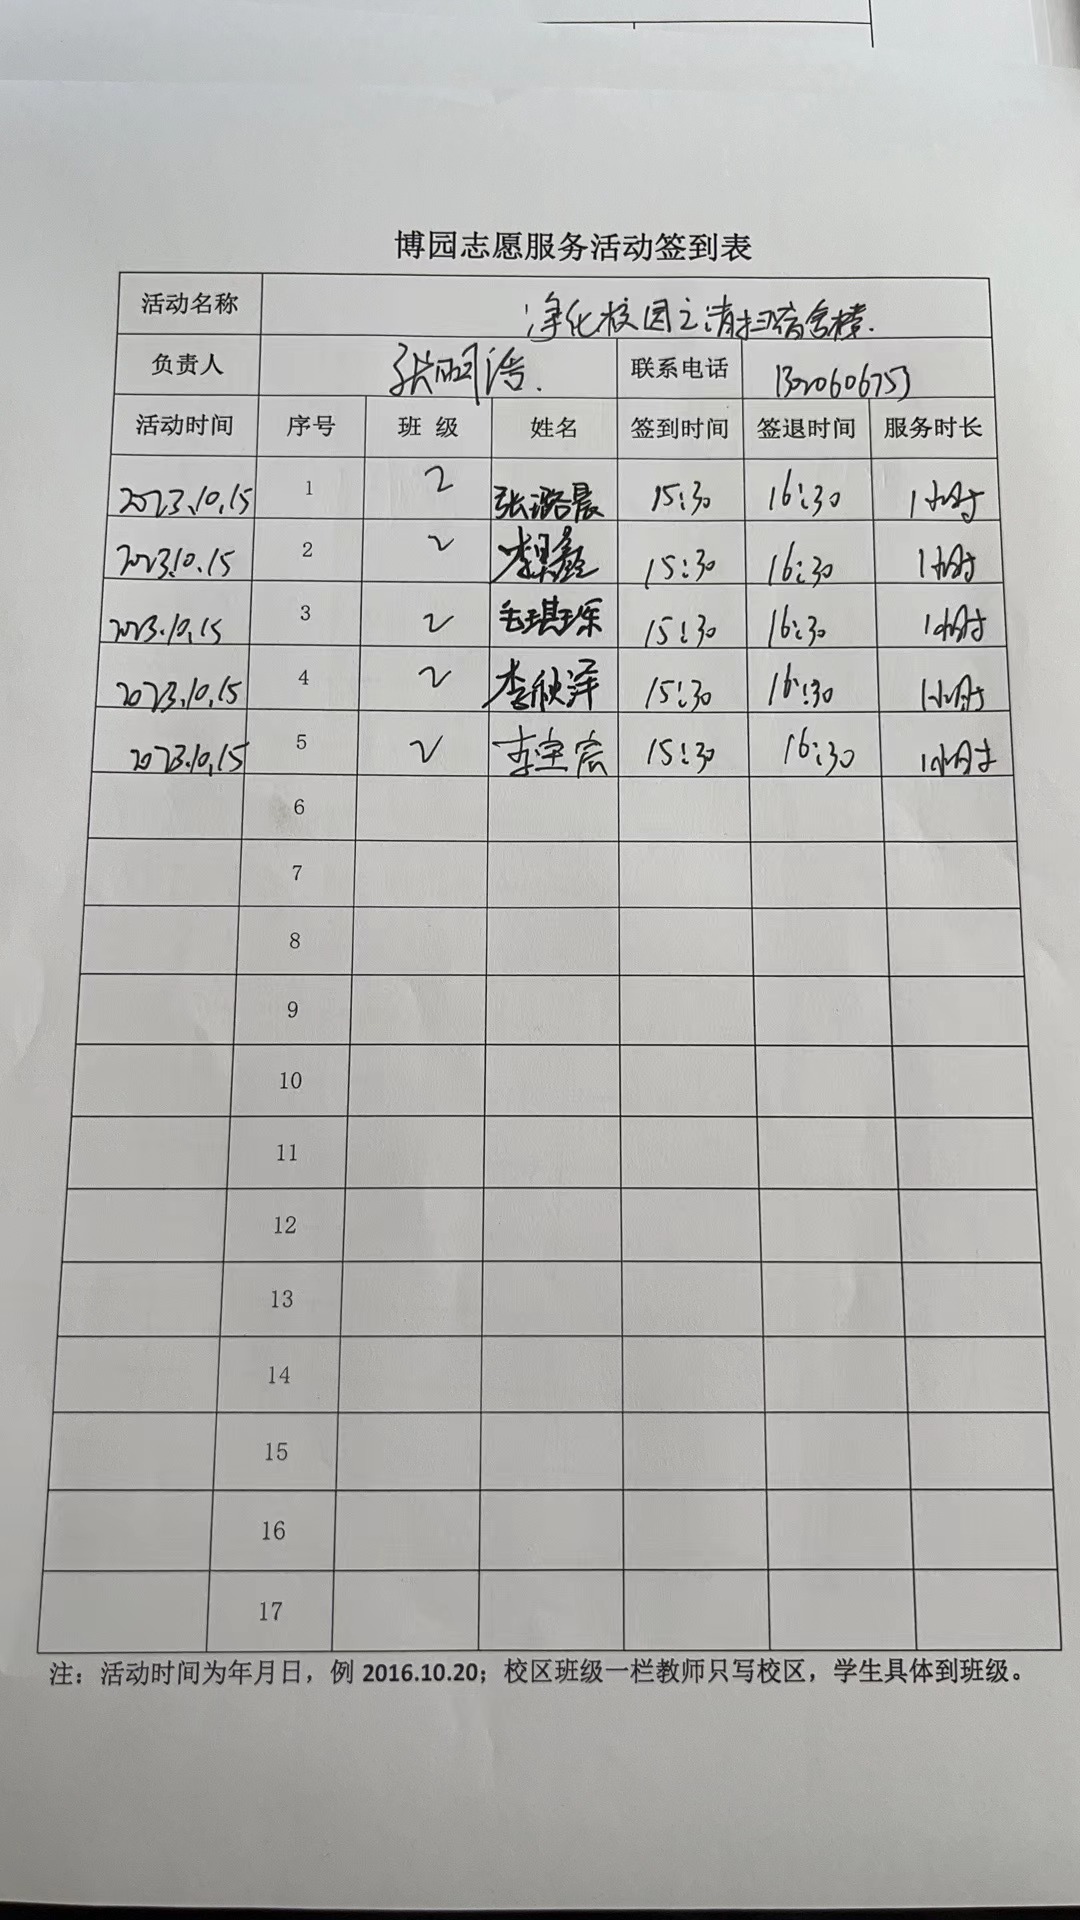 博园志愿服务活动签到表
活动名称 净化校园之清扫宿舍楼.
负责人 联系电话 1320606753
活动时间 序号 班 级 姓名 签到时间 签退时间 服务时长
2023.10.15 1 2 张璐晨 15:30 16:30 1小时
2023.10.15 2 2 李昊鑫 15:30 16:30 1小时
2023.10.15 3 2 毛琪琛 15:30 16:30 1小时
2023.10.15 4 2 李秋泽 15:30 16:30 1小时
2023.10.15 5 2 李宝宏 15:30 16:30 1小时
6
7
8
9
10
11
12
13
14
15
16
17
注：活动时间为年月日，例 2016.10.20；校区班级一栏教师只写校区，学生具体到班级。